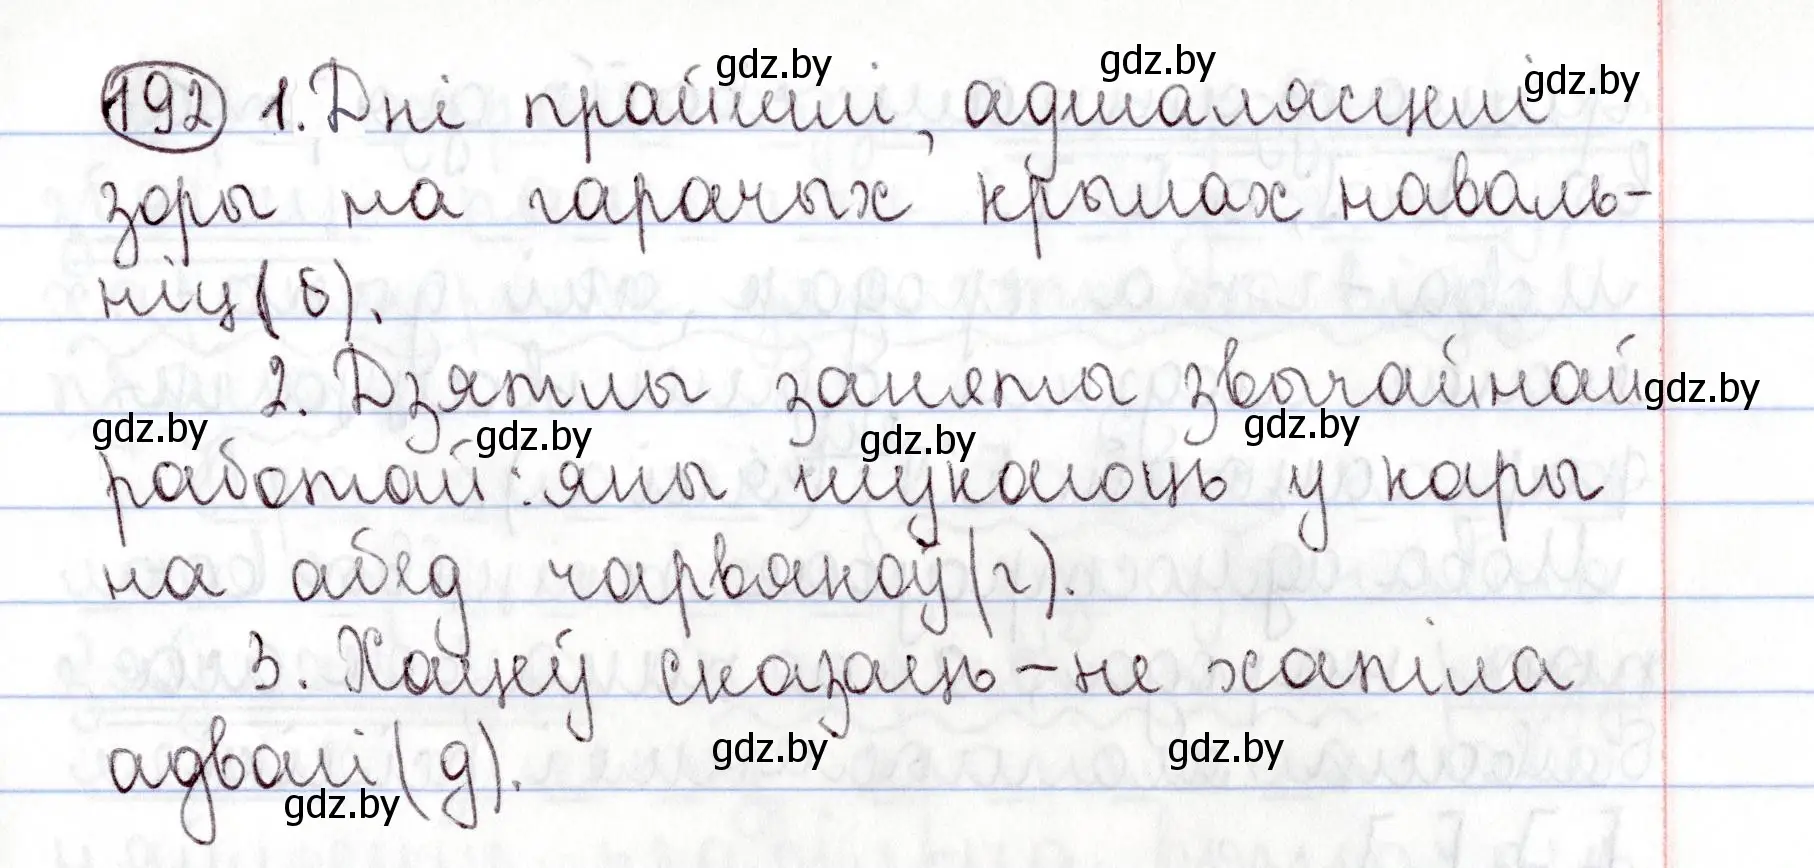 192 1. Дні прайшлі, адшалясцелі
зоры на гарачых крылах наваль-
ніц (б).
2. Дзятлы заняты звычайнай
работай: яны шукаюць у кары
на абед чарвякоў (г).
3. Хацеў сказаць – не хапіла
адвагі (д).
gdz.by
gdz.by
gdz.by
gdz.by
gdz.by
gdz.by
gdz.by
gdz.by
gdz.by
gdz.by
gdz.by